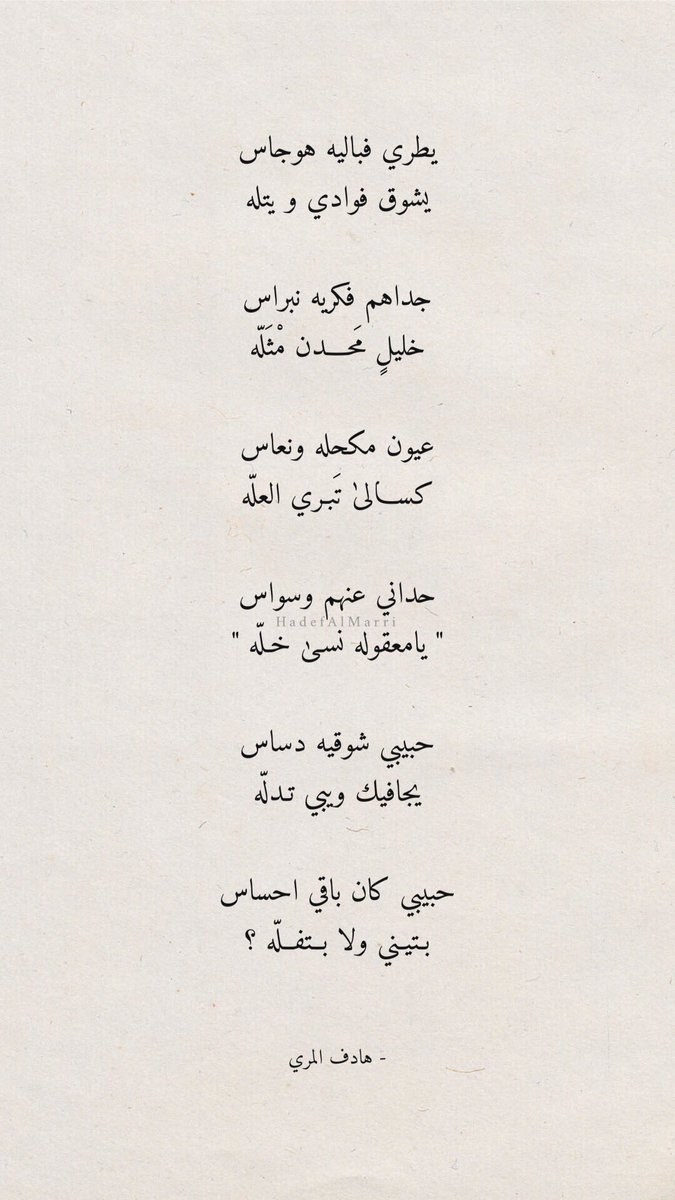 يطري فباليه هوجاس
يشوق فوادي و يتله
جداهم فكريه نبراس
خليلٍ مَحــدن مْثَلّه
عيون مكحله ونعاس
كســالىٰ تَبري العلّه
حداني عنهم وسواس
HadefAlMarri
" يامعقوله نسىٰ خلّه "
حبيبي شوقيه دساس
يجافيك ويبي تدلّه
حبيبي كان باقي احساس
بـتيـني ولا بــتفــلّه ؟
- هادف المري